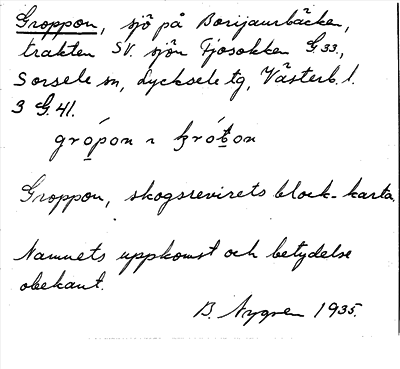 Groppon, sjö på Borijaurbäcken,
trakten SV. sjön Tjosokken G33.,
Sorsele sn, Lycksele tg, Västerb. l.
3 G. 41.
grópon
Groppon, skogsrevirets block-karta.
Namnets uppkomst och betydelse
obekant.
B. Nygren 1935.